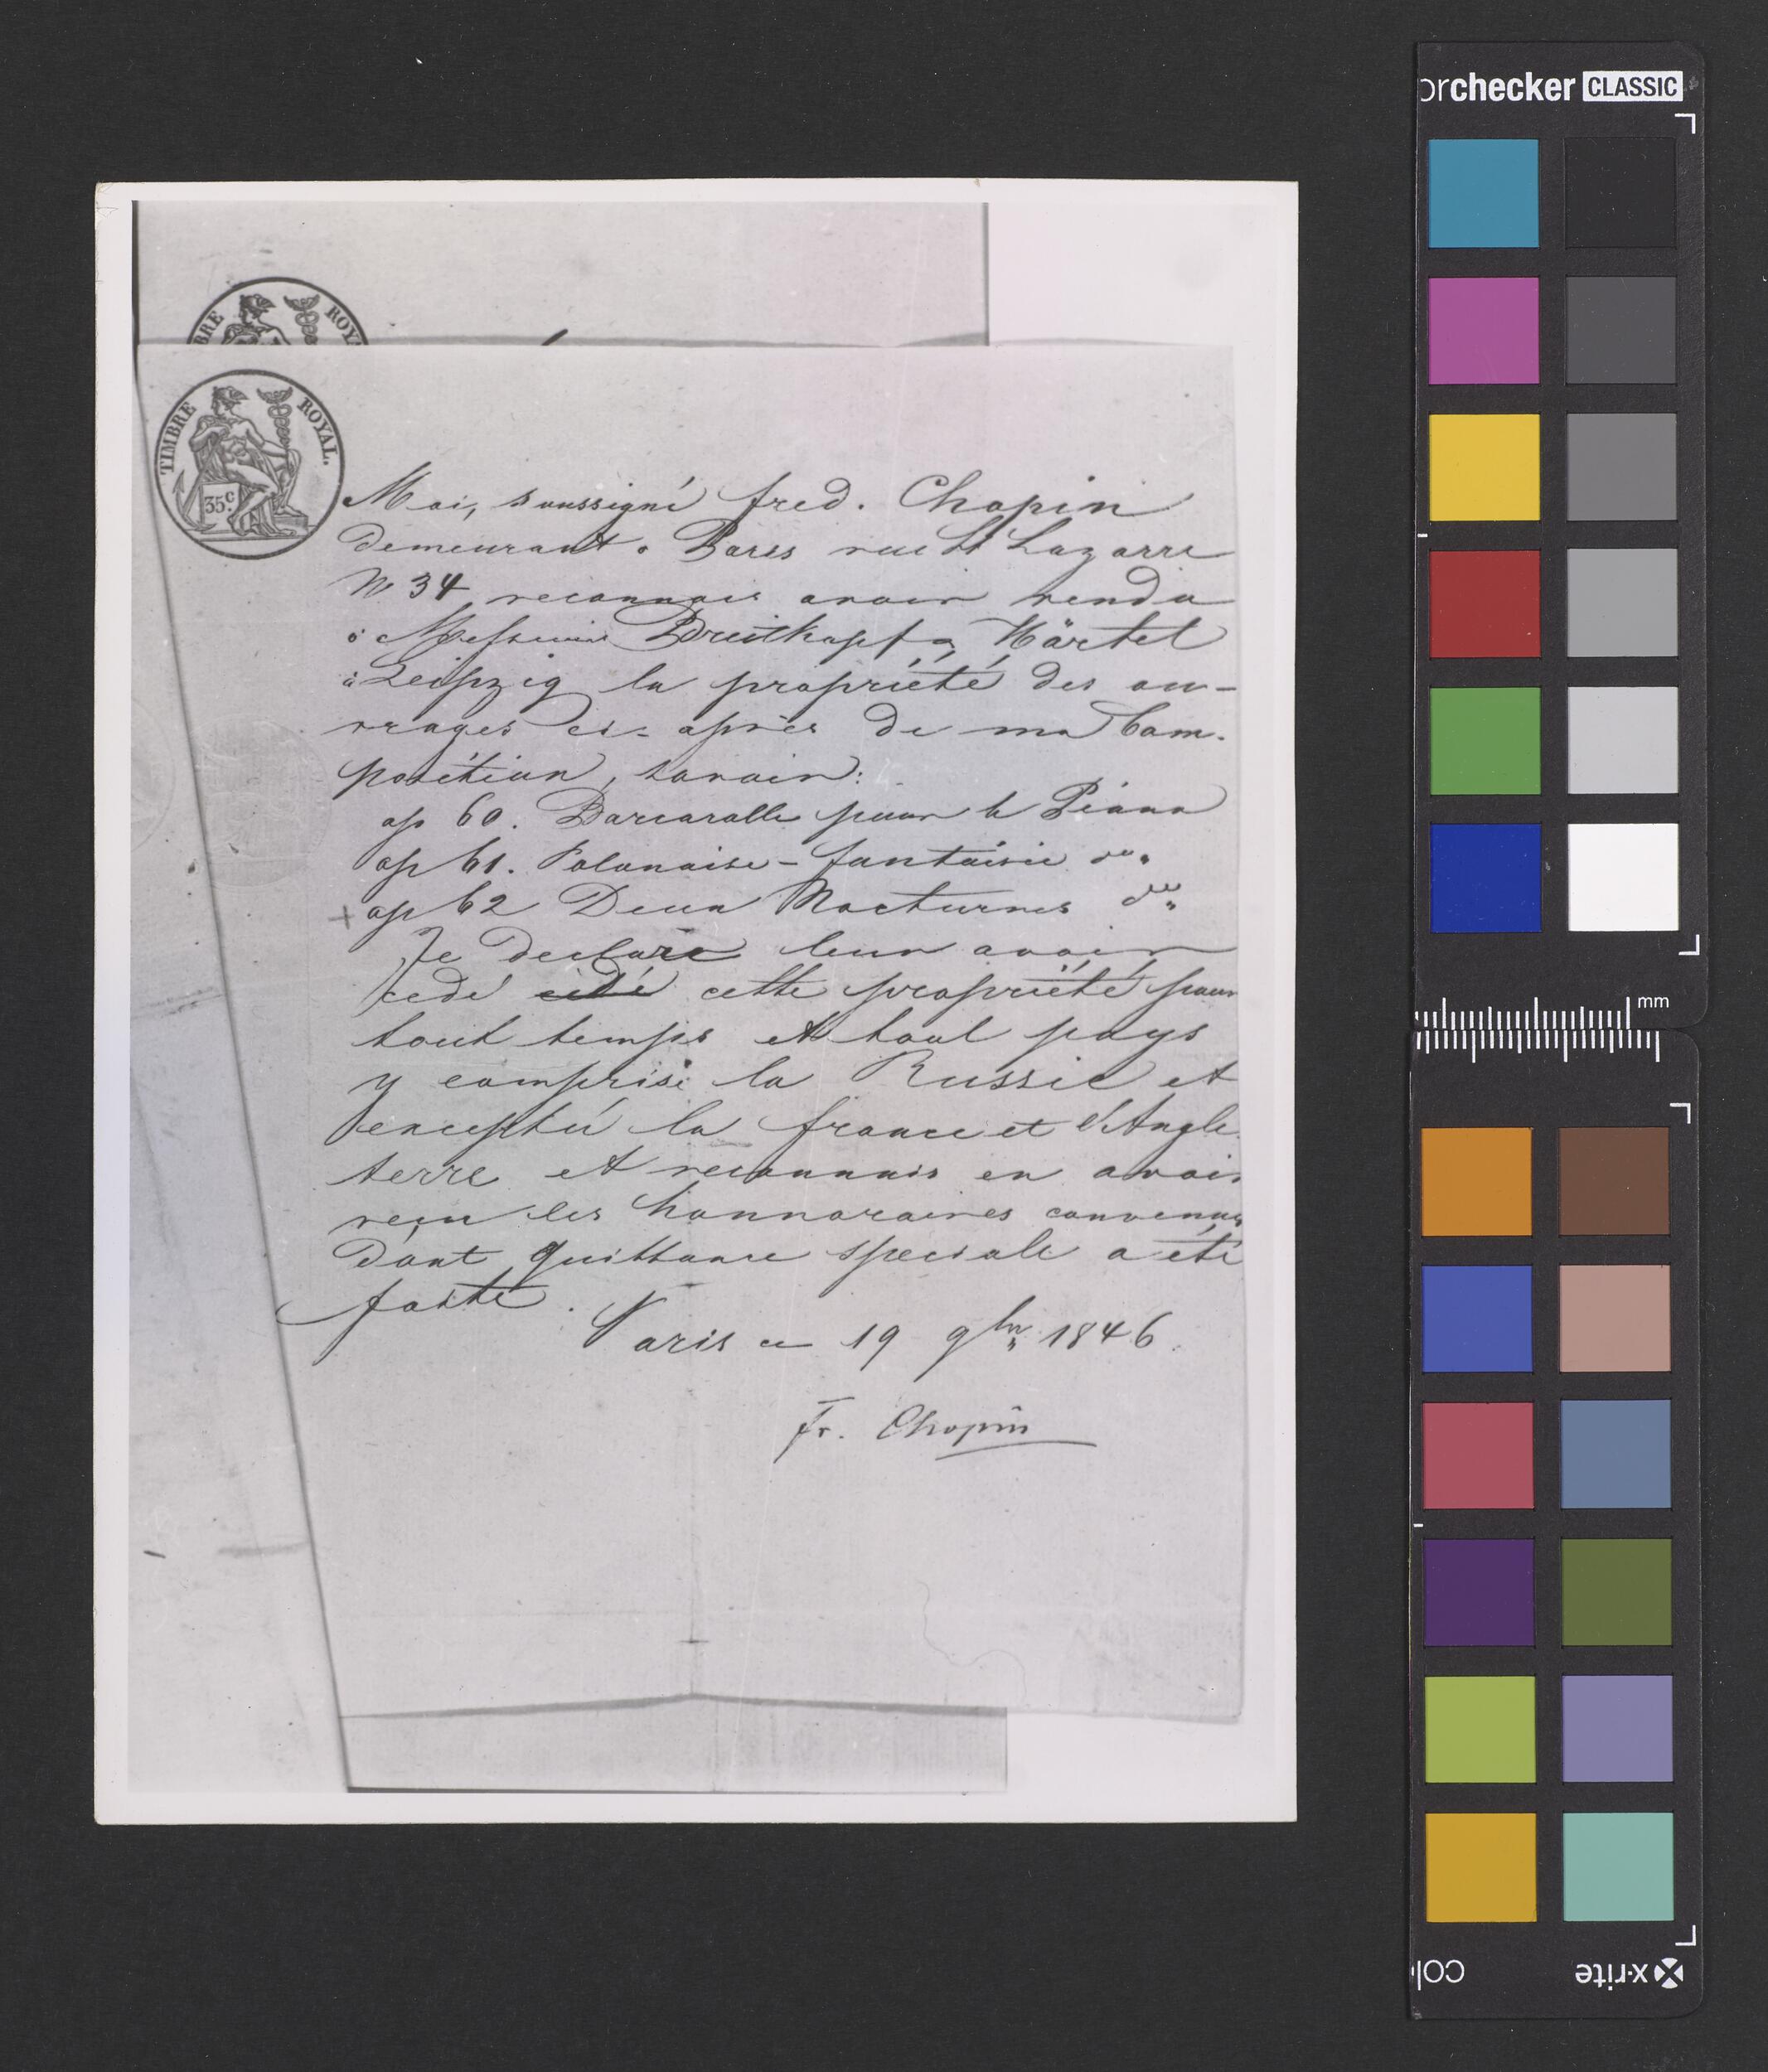 orchecker CLASSIC
BRE ROYA
TIMBRE ROYAL.
35c.
Moi, soussigné fred. Chopin
demeurant a Paris rue St Lazarre
No 34 reconnais avoir vendu
a Messieurs Breitkopf & Härtel
à Leipzig la propriété des ou-
vrages ci-après de ma Com-
position, savoir:
op 60. Barcarolle pour le Piano
op 61. Polonaise-fantaisie do "
+ op 62 Deux Nocturnes do "
Je declare leur avoir
cedé cédé cette propriété pour
tout temps et tout pays
y compris la Russie et
excepté la france et l'Angle-
terre et reconnais en avoir
reçu les honnoraires convenus
dont quittance speciale a été
faite.
Paris ce 19 9bre 1846.
Fr. Chopin
mm
x-rite
colo